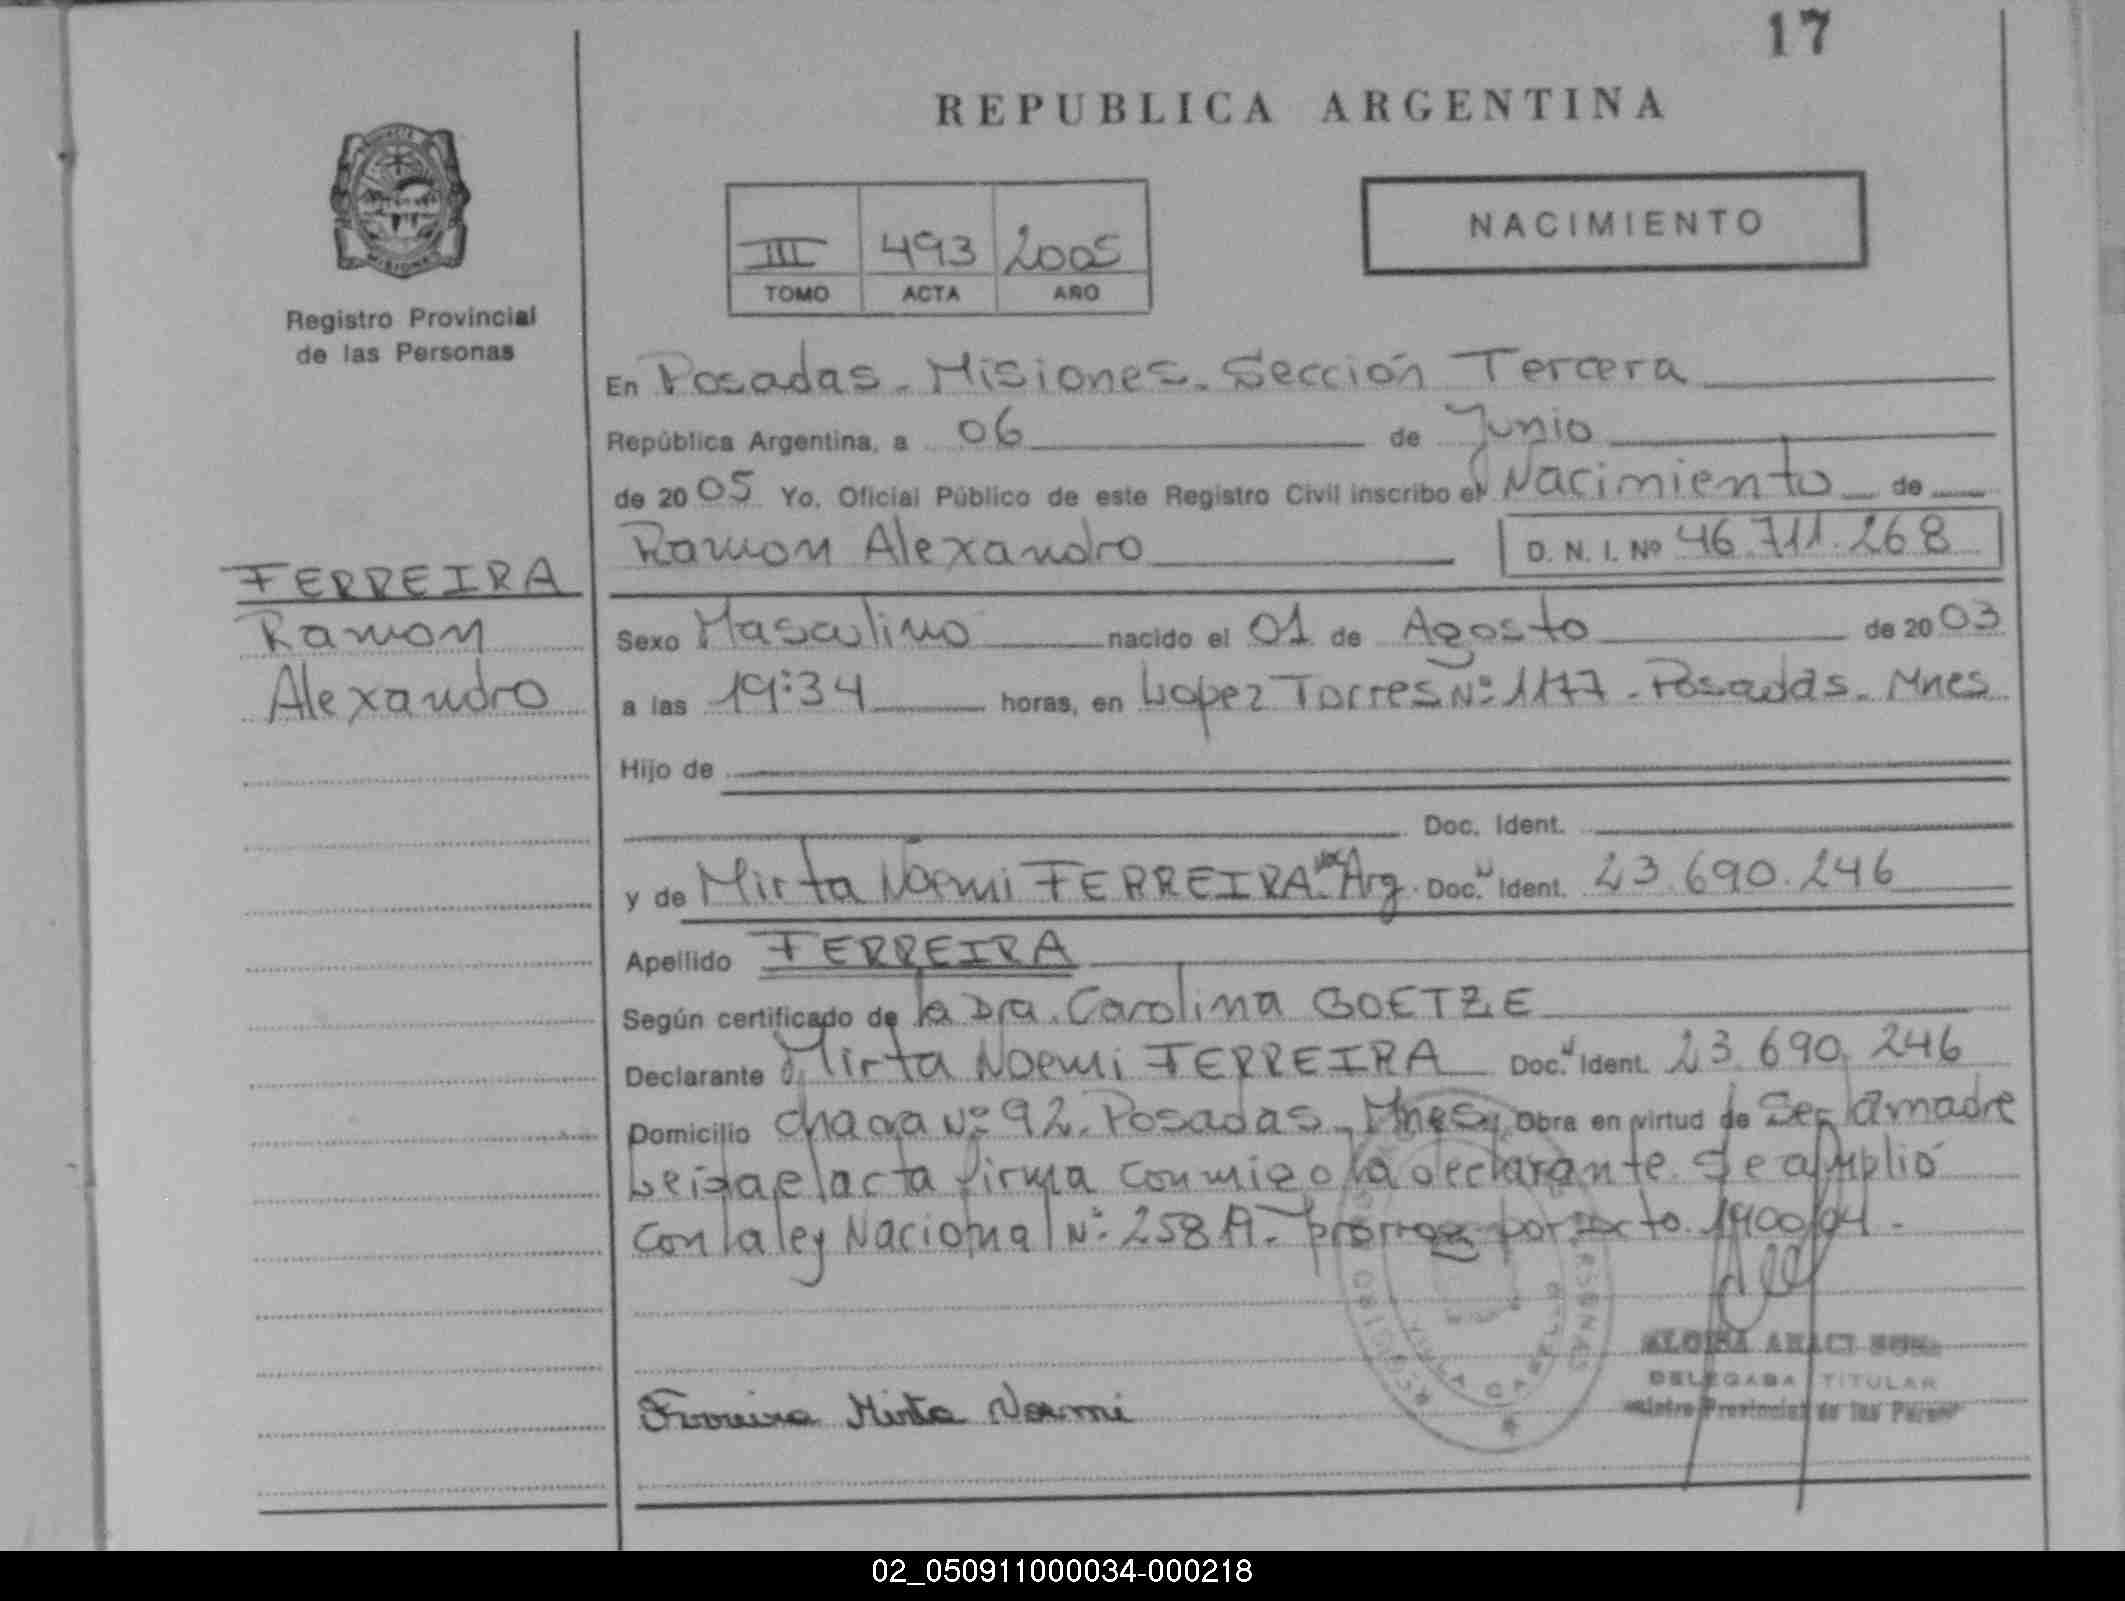 17
REPUBLICA ARGENTINA
NACIMIENTO
III 493 2005
TOMO ACTA AÑO
Registro Provincial
de las Personas
En Posadas - Misiones - Sección Tercera
República Argentina, a 06 de Junio
de 2005 Yo, Oficial Público de este Registro Civil inscribo el Nacimiento de
Ramon Alexandro D. N. I. Nº 46.711.268
FERREIRA
Ramon
Alexandro
Sexo Masculino nacido el 01 de Agosto de 2003
a las 19:34 horas, en Lopez Torres Nº 1177 - Posadas - Mnes
Hijo de
Doc. Ident.
y de Mirta Noemi FERREIRA - Arg. Doc. Ident. 23.690.246
Apellido FERREIRA
Según certificado de la Dra. Carolina GOETZE
Declarante Mirta Noemi FERREIRA Doc. Ident. 23.690.246
Domicilio chacra Nº 92 - Posadas - Mnes Obra en virtud de Ser la madre
Leida el acta firma conmigo la declarante. Se amplió
con la ley Nacional Nº 25819 - por 1400/04 -
Ferreira Mirta Noemi
DELEGADA TITULAR
Registro Provincial de las Person
02_050911000034-000218